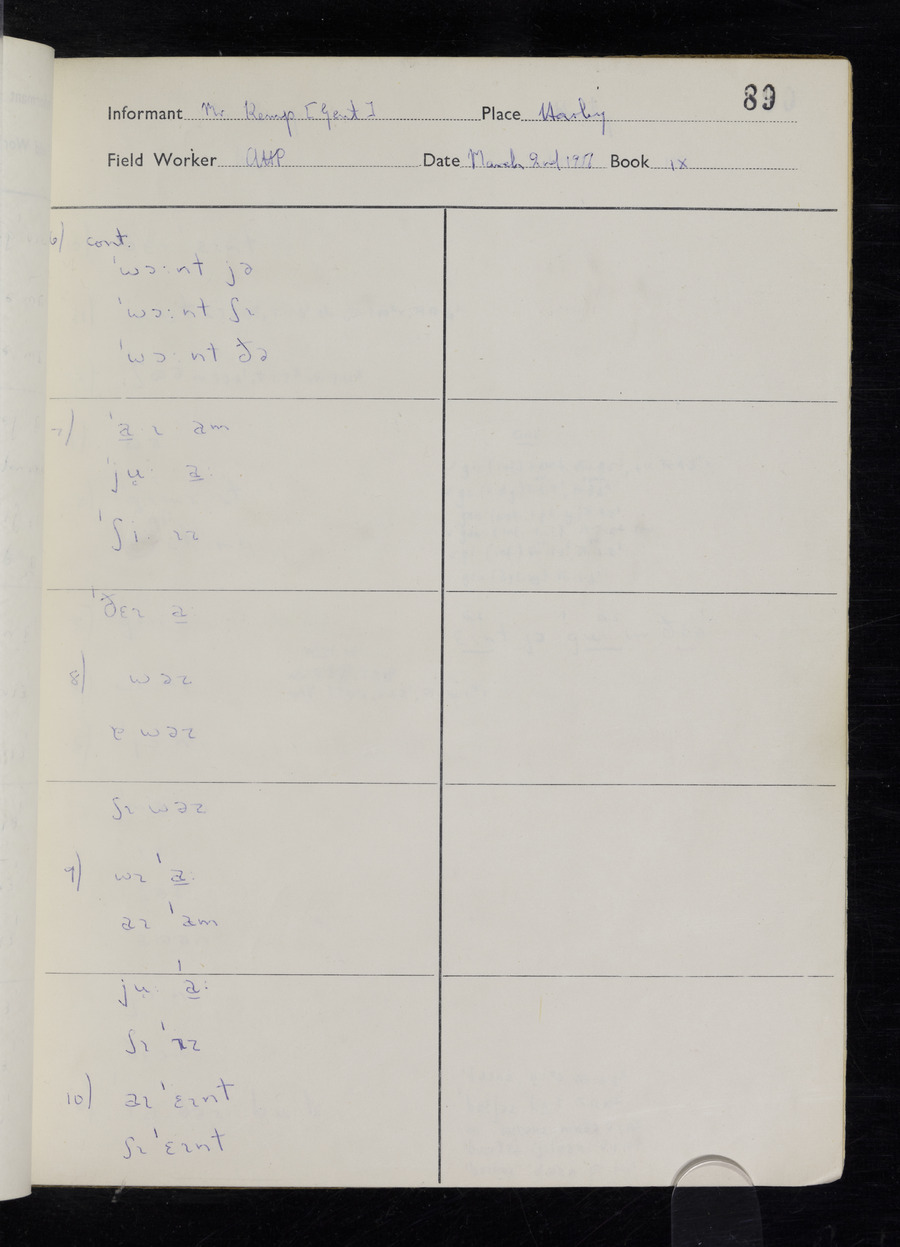 89
Informant Mr. Kemp [Gent] Place Harby
Field Worker Date March 2nd Book IX
6) cont.
ˈwɔ:nt jə
ˈwɔ:nt ʃɪ
ˈwɔ:nt ðə
7) ˈa̲ɪ am
ˈju̞· a̲:
ˈʃi· ɪz
ˈðɛɪ a̲:
8) wəz
ɐ wəz
ʃɪ wəz
9) wɪ ˈa̲:
aɪ ˈam
ju̞: ˈa̲:
ʃɪ ˈɪz
10) aɪ ˈɛɪnt
ʃɪ ˈɛɪnt